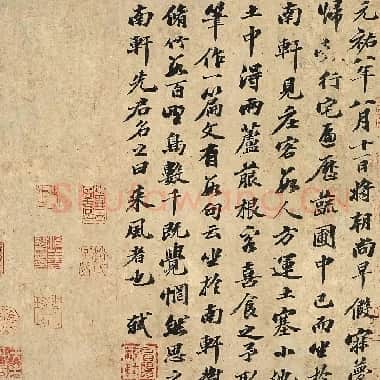 元祐八年八月十一日將朝尚早假寐夢
歸縠行宅遍歷蔬圃中已而坐於
南軒見莊客數人方運土塞小
土中得兩蘆菔根客喜食之予
筆作一篇文有數句云坐於南軒對
脩竹數百野鳥數千既覺惘然思之
南軒先君名之曰來風者也 軾